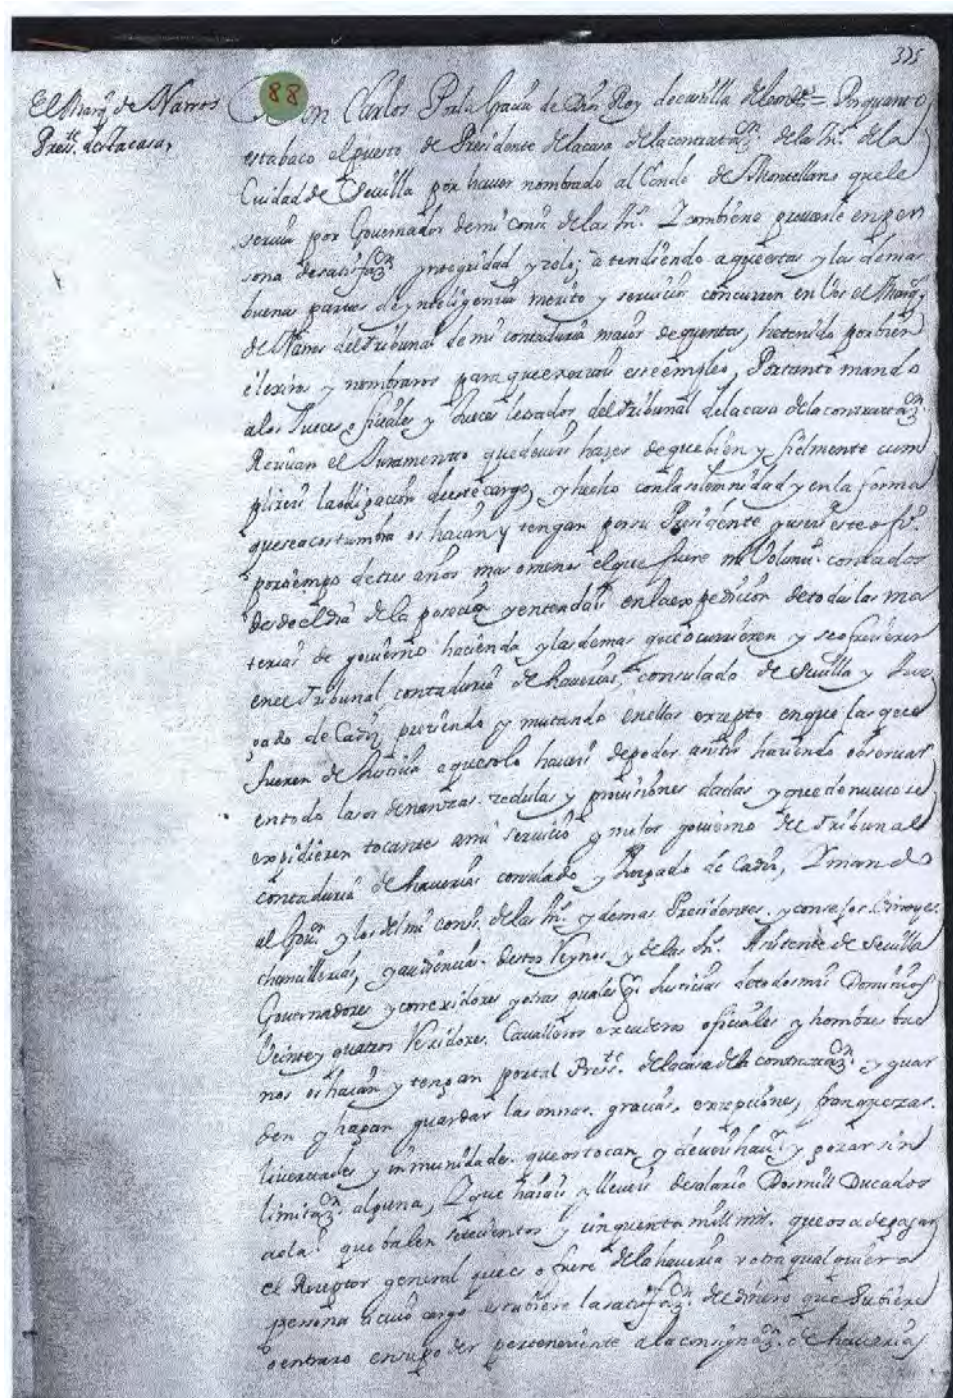 335
88
El Marq de Narros
Press.te de la casa,
Don Carlos Por la Gracia de Dios Rey de castilla de leon ett.ª = Porquanto
esta baco el puesto de Presidente de la casa de la contrataz.on de las Ind.s de la
Ciudad de Sevilla por haver nombrado al Conde de Montellano que le
servia por Governador de mi cons.o de las Ind.s Y combiene proveerle en per
sona de satisfaz.on ynteguidad y zelo; atendiendo a que estas y las demas
buenas partes de ynteligencia merito y servicios concurren en Vos el Marq.
de Narros del tribunal de mi contaduria maior de quentas, he tenido por bien
elexiros y nombraros para que exerzais este empleo, Portanto mando
a los Jueces oficiales y Jueces letrados del tribunal de la casa de la contrataz.on
Recivan el Juramento que deveis hazer de que bien y fielmente cum
plireis la obligacion de este cargo, y hecho con la solemnidad y en la forma
que se acostumbra os hayan y tengan por su Presidente y useis este ofi.o
por tiempo de tres años mas o menos el que fuere mi Volunt. contados
desde el dia de la posecion y entendais en la expedicion de todas las ma
terias de govierno hacienda y las demas que ocurrieren y se ofrecieren
en el Tribunal, contaduria de haverias, consulado de Sevilla y Juz
gado de Cadiz, pidiendo y mutando en ellas exepto en que las que
fueren de Justicia aque solo haveis de poder asistir haciendo observar
en todo las ordenanzas zedulas y provisiones dadas y que de nuevo se
expidieren tocante a mi servicio y mejor govierno de el Tribunal
contaduria de haverias consulado y Juzgado de Cadiz, Y mando
al Gov.or y los del mi cons.o de las Ind.s y demas Presidentes y consejos Virreyes
chancillerias, y audiencias destos Reynos y de las Ind.s Asistente de Sevilla
Governadores y correxidores y otras quales q.r Justicias de todos mis Dominios
Veinte y quatros Rexidores Cavalleros escuderos oficiales y hombres bue
nos os hayan y tengan por tal Press.te de la casa de la contrataz.on y guar
den y hagan guardar las onrras gracias, exempciones, franquezas
livertades y inmunidades que os tocan y deveis haver y gozar sin
limitaz.on alguna, Y que hayais y lleveis de salario Dos mill Ducados
que balen setecientos y cinquenta mill mrs. que os a de pagar
el Receptor general que es o fuere de la haveria u otra qualquiera
persona a cuio cargo estubiere la satisfaz.on de el dinero que Hubiere
o entrare en su poder perteneciente a la consignaz.on de haverias